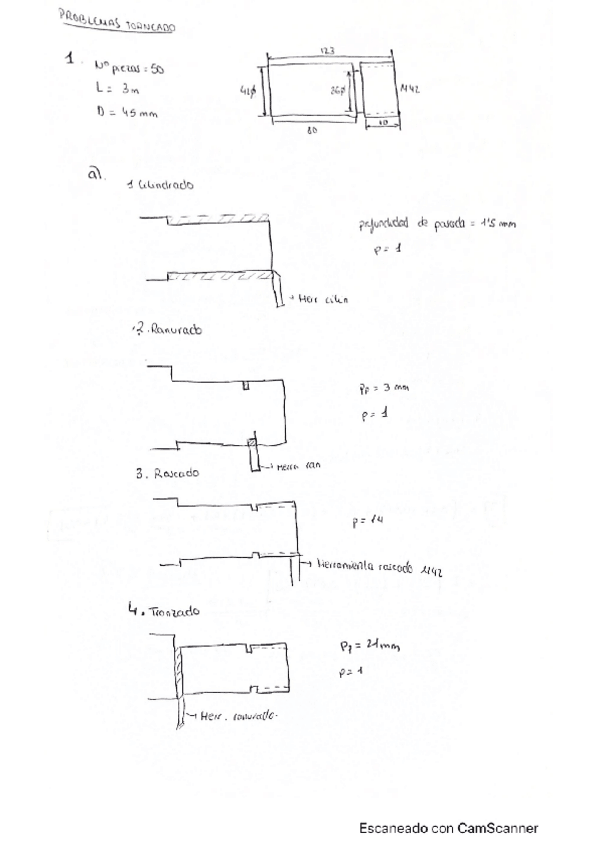 PROBLEMAS TORNEADO
1. Nº piezas = 50
L = 3 m
D = 45 mm
123
42ϕ
36ϕ
M42
80
40
a).
1 Cilindrado
profundidad de pasada = 1'5 mm
p = 1
→ Herr cilin
2. Ranurado
Pp = 3 mm
p = 1
→ Herra ran
3. Roscado
p = 14
→ Herramienta roscado M42
4. Tronzado
Pp = 21 mm
p = 1
→ Herr. ranurado.
Escaneado con CamScanner